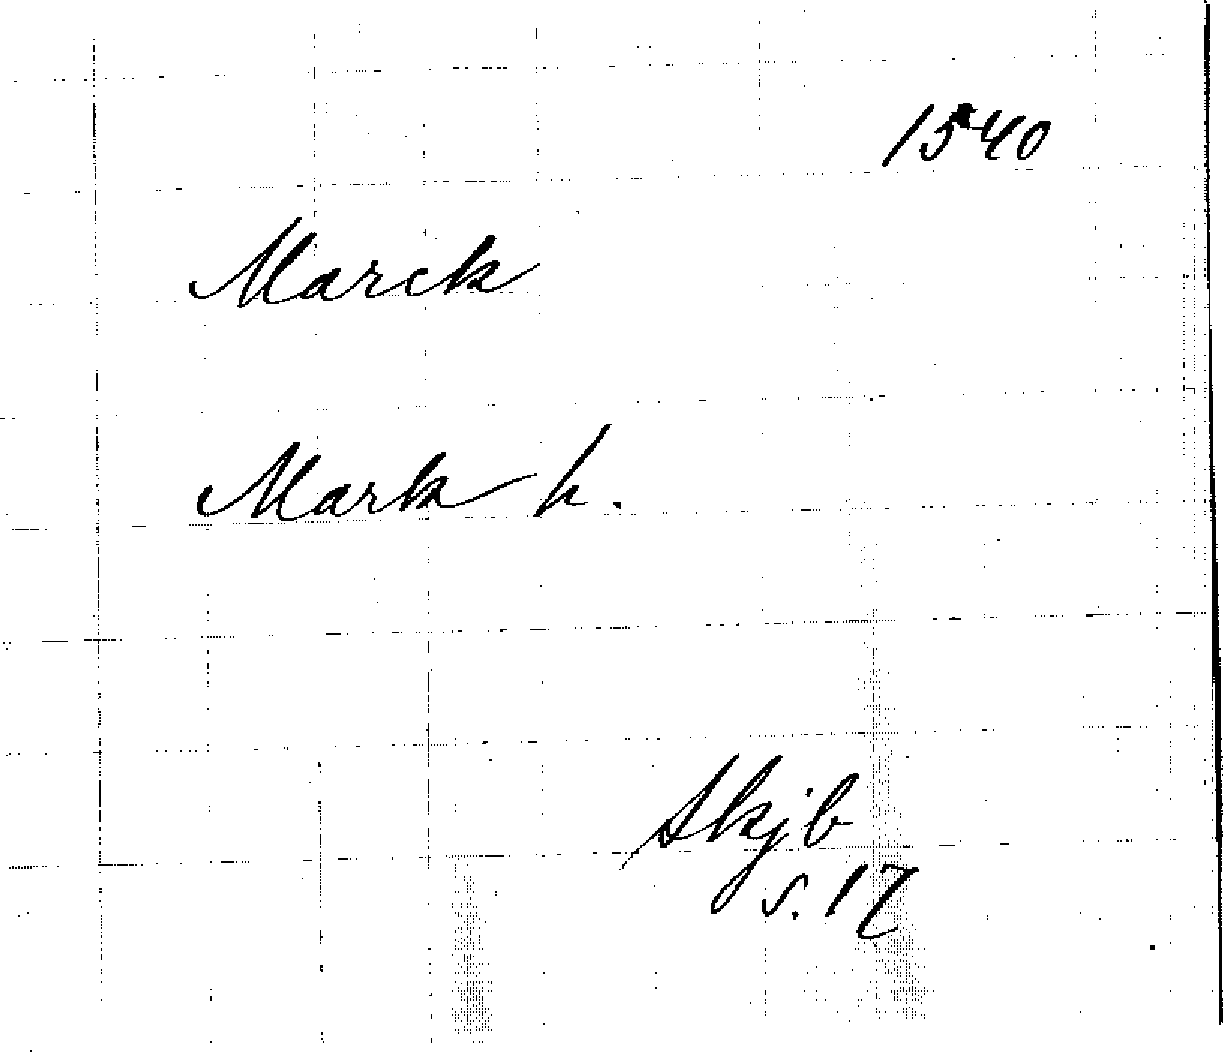 1540
Marck
Mark h.
Skjb
s. 17